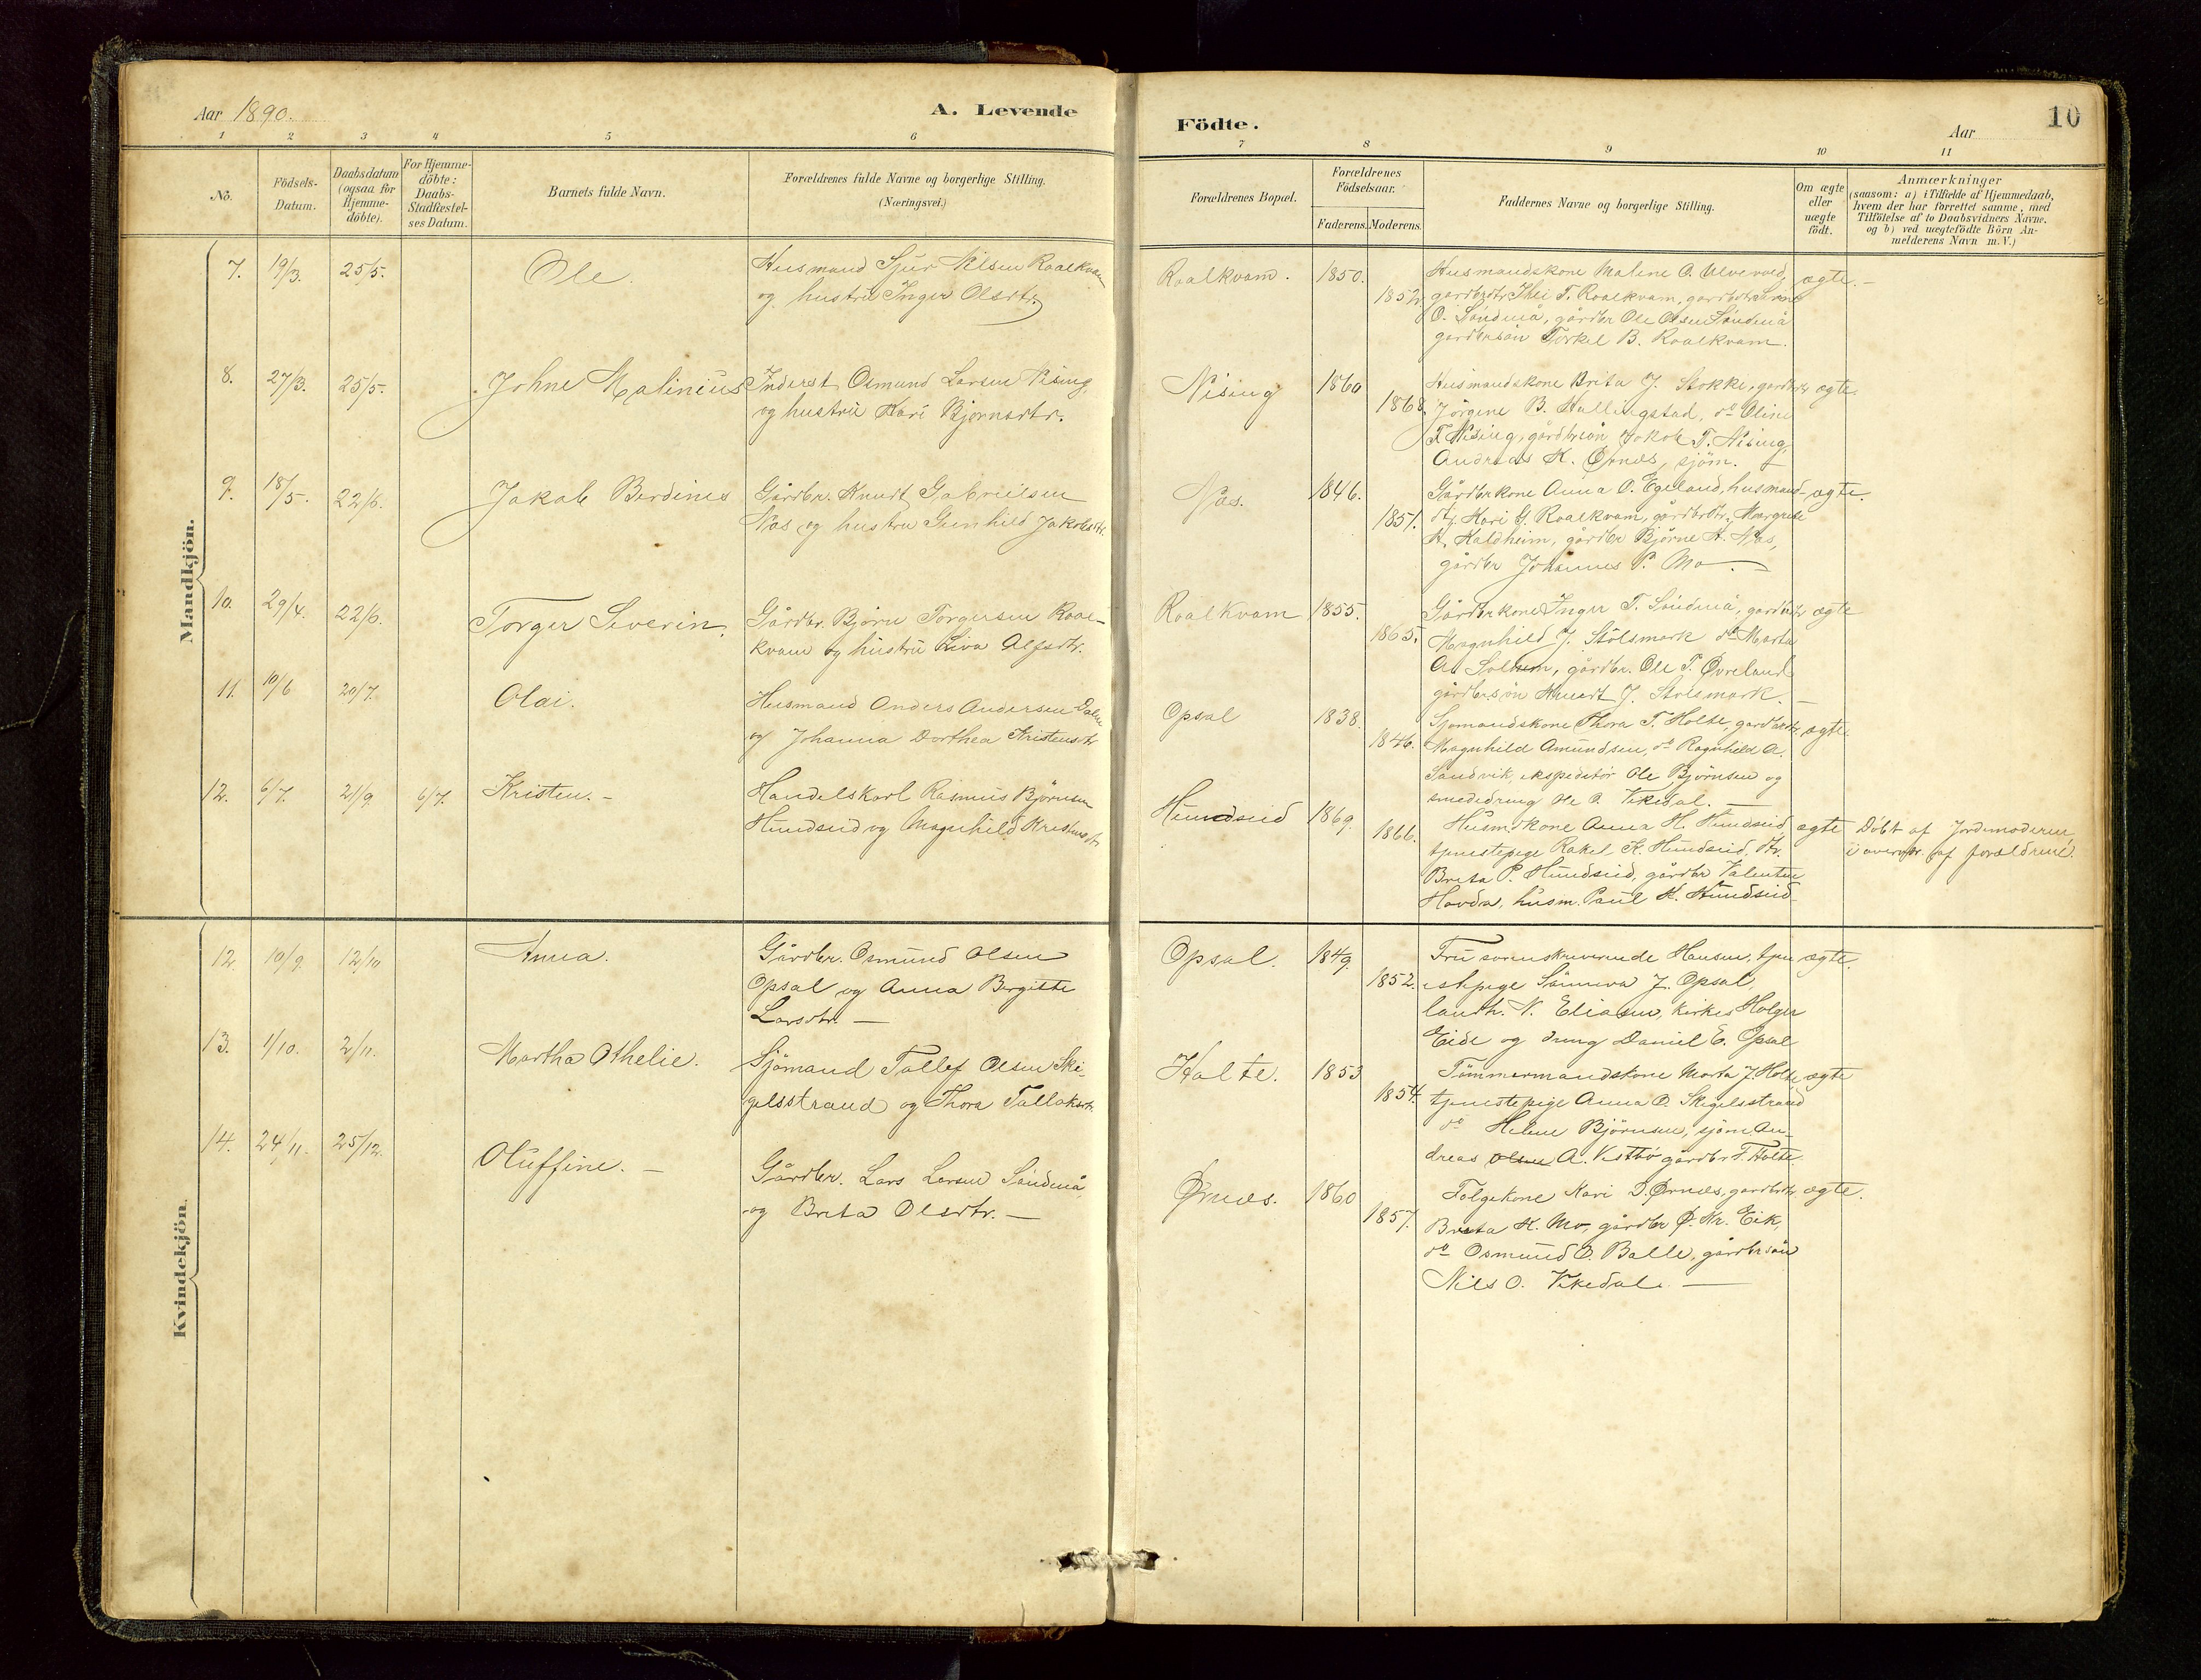 Aar 1890.
A. Levende
Födte.
Aar
10
1 2 3 4 5 6 7 8 9 10 11
No.
Födsels-
Datum.
Daabsdatum
(ogsaa for
Hjemme-
döbte).
For Hjemme-
döbte:
Daabs-
Stadfæstel-
ses Datum.
Barnets fulde Navn.
Forældrenes fulde Navne og borgerlige Stilling.
(Næringsvei.)
Forældrenes Bopæl.
Forældrenes
Födselsaar.
Faderens. Moderens.
Faddernes Navne og borgerlige Stilling.
Om ægte
eller
uægte
födt.
Anmærkninger
(saasom: a) i Tilfælde af Hjemmedaab,
hvem der har forrettet samme, med
Tilföielse af to Daabsvidners Navne,
og b) ved uægtefödte Börn An-
melderens Navn m. V.)
Mandkjön.
7. 19/3. 25/5. Ole.
Husmand Sjur Nilsen Roalkvam
og hustru Inger Olsdtr.
Roalkvam. 1850. 1852.
Husmandskone Malene O. Ulvevold,
gardbrdtr T. Roalkvam, gardbrdtr
O. Söndenå, gårdbr Ole Olsen Söndenå
gardbrsön Torkel B. Roalkvam.
ægte.
8. 27/3. 25/5. Johne Malinius
Inderst Osmund Larsen Nising,
og hustru Kari Bjornsdtr.
Nising 1860 1868.
Husmandskone Brita J. Stokke, gardbrdtr
Jörgine B. Hallingstad, do Oline
T. Nising, gårdbrsön Jakob T. Nising,
Andreas K. Örnes, sjöm.
ægte.
9. 18/5. 22/6. Jakob Berdines
Gårdbr. Knudt Gabrielsen
Næs og hustru Gunhild Jakobsdtr.
Næs. 1846. 1851.
Gårdbrkone Anna O. Egeland, husmand-
dtr. Kari G. Roalkvam, gårdbrdtr. Margrete
A. Kaldheim, gårdbr Bjørne A. Næs,
gårdbr Johannes P. Mo.
ægte.
10. 29/4. 22/6. Torger Severin.
Gårdbr. Bjørn Torgersen Roal-
kvam og hustru Liva Alfsdtr.
Roalkvam 1855. 1865.
Gårdbrkone Inger T. Söndenå, gardbrdtr
Magnhild J. Stölsmark do Marta
A. Solem, gårdbr. Ole T. Øvreland
gårdbrsön Knudt J. Stolsmark.
ægte
11. 10/6 20/7. Olai.
Husmand Anders Andersen
og Johanna Dorthea Kristensdtr
Opsal 1838. 1846.
Sjomandskone Thora T. Holte, gardbrdtr
Magnhild Amundsen, do Ragnhild A.
Sandvik, ekspeditør Ole Bjørnsen og
smededreng Ole O. Vikedal.
ægte.
12. 6/7. 21/9. 6/7. Kristen.
Handelskarl Rasmus Björnsen
Hundseid og Magnhild Kristensdtr
Hundseid 1869. 1866.
Husm.kone Anna H. Hundseid,
tjenestepige Rakel K. Hundseid, dtr.
Brita P. Hundseid, gårdbr Valentin
Hovda, husm. Paul K. Hundseid
ægte
Döbt af Jordemoderen
i overvær af foraldrene.
Kvindekjön.
12. 10/9. 12/10 Anna.
Gårdbr. Osmund Olsen
Opsal og Anna Bergitte
Larsdtr.
Opsal. 1849. 1852.
Fru sorenskriverinde Hansen, tjen-
estepige Sönneva J. Opsal,
landh. N. Eliasen, kirkes. Holger
Eide og dreng Daniel E. Opsal
ægte.
13. 1/10. 2/11. Martha Othelie.
Sjömand Tollef Olsen Ski-
gelsstrand og Thora Tollaksdtr.
Holte. 1853 1854.
Tömmermandskone Marta J. Holte,
tjenestepige Anna O. Skigelsstrand
do Helene Björnsen, sjöm An-
dreas Olsen A. Vestbö gårdbr T. Holte.
ægte
14. 24/11. 25/12. Oluffine.
Gårdbr. Lars Larsen Söndenå,
og Brita Olsdtr.
Ørnæs. 1860 1857.
Følgekone Kari D. Ørnæs, gardbrdtr
Brita K. Mo, gårdbr Ø. Kr. Eik,
do Osmund O. Balle, gårdbrsön
Nils O. Vikedal.
ægte.